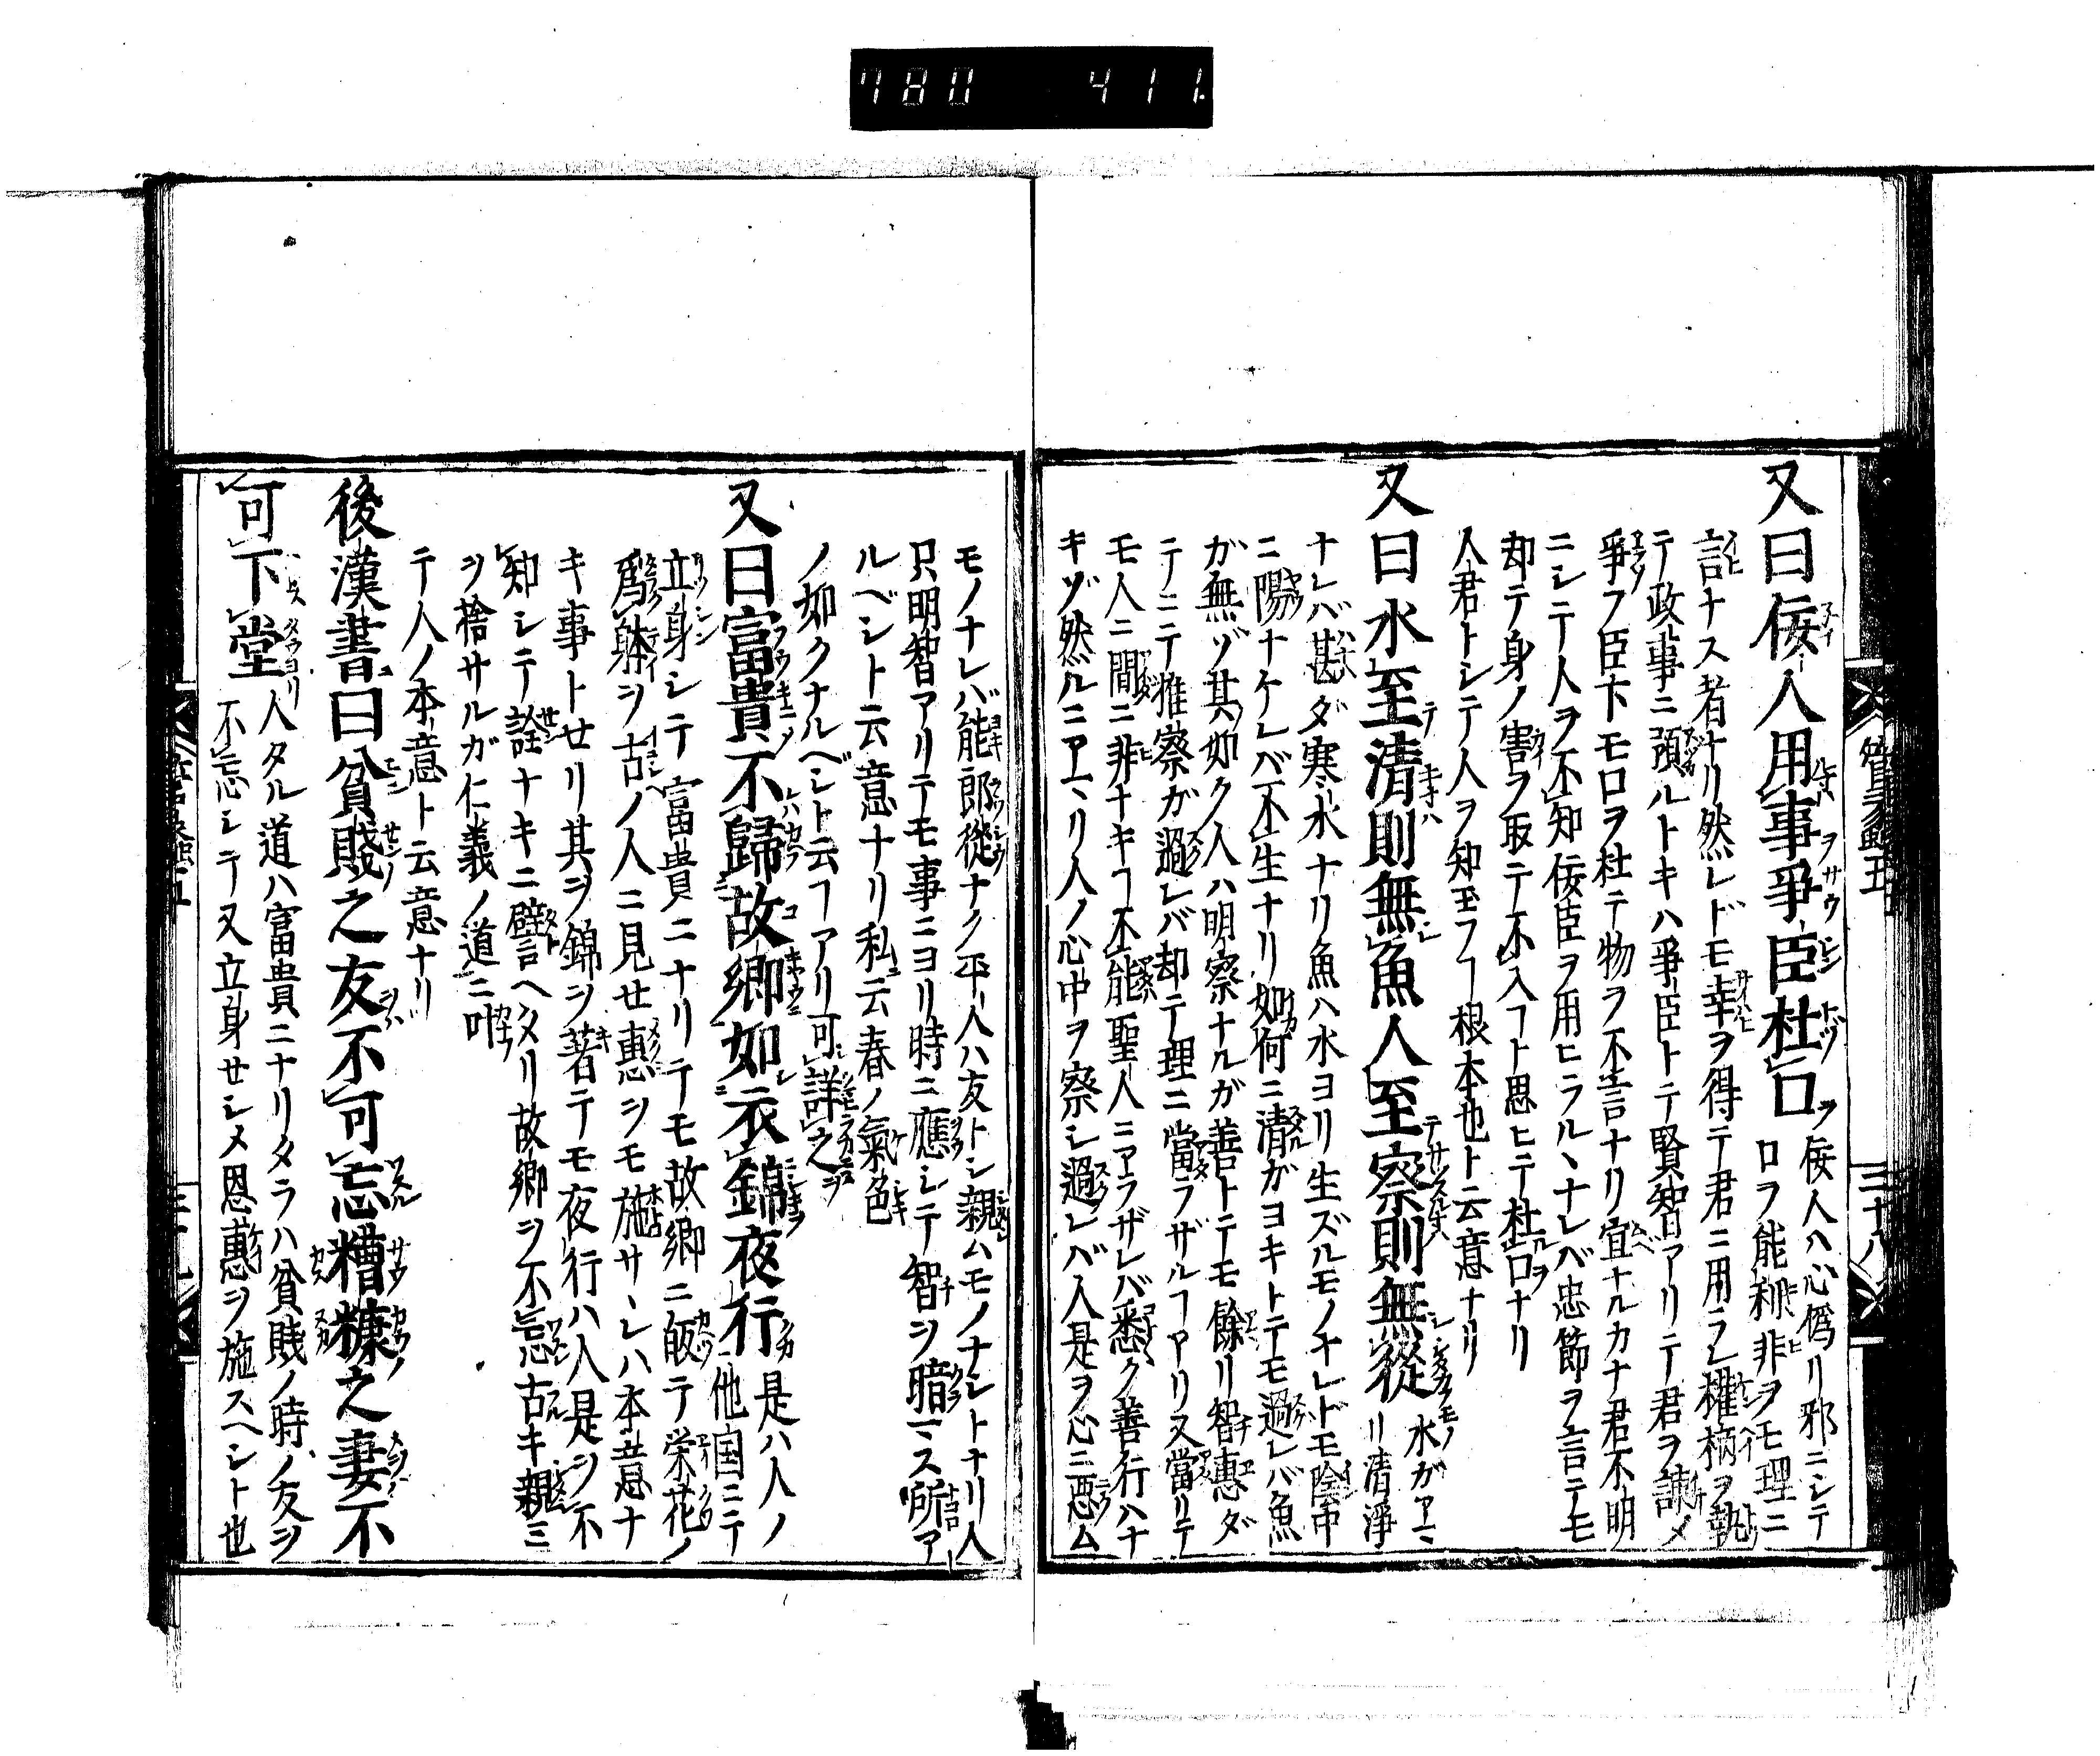 780 411
又曰佞人用事爭臣杜口佞人ハ心僞リ邪ニシテ
口ヲ能利非ヲモ理ニ
言ナス者ナリ然レドモ幸ヲ得テ君ニ用ラレ權柄ヲ執
テ政事ニ預ルトキハ爭臣トテ賢智アリテ君ヲ諌メ
爭フ臣下モ口ヲ杜テ物ヲ不言ナリ宜ナルカナ君不明
ニシテ人ヲ不知佞臣ヲ用ヒラルヽナレバ忠節ヲ言テモ
却テ身ノ害ヲ取テ不入ヿト思ヒテ杜口ヲナリ
人君トシテ人ヲ知玉フヿ根本也ト云意ナリ
又曰水至清則無魚人至察則無從水ガアマ
リ清淨
ナレバ甚ダ寒水ナリ魚ハ水ヨリ生ズルモノナレドモ陰中
ニ陽ナケレバ不生ナリ如何ニ清ガヨキトテモ過レバ魚
ガ無ゾ其如ク人ハ明察ナルガ善トテモ餘リ智惠ダ
テニテ推察ガ過レバ却テ理ニ當ラザルヿアリ又當リテ
モ人ニ間ニ非ナキヿ不能聖人ニアラザレバ悉ク善行ハナ
キゾ然ルニアマリ人ノ心中ヲ察シ過レバ人是ヲ心ニ惡ム
モノナレバ能郎從ナク平人ハ友トシ親ムモノナシトナリ人
只明智アリテモ事ニヨリ時ニ應シテ智ヲ暗マス所ア
ルベシト云意ナリ私ニ云春ノ氣色
ノ如クナルベシト云ヿアリ可詳之
又曰富貴不歸故鄕如衣錦夜行是ハ人ノ
他国ニテ
立身シテ富貴ニナリテモ故鄕ニ皈テ栄花ノ
爲躰ヲ古ノ人ニ見せ惠シモ施サヽレハ本意ナ
キ事トせリ其ヲ錦ヲ著テモ夜行ハ人是ヲ不
知シテ詮ナキニ譬ヘタリ故鄕ヲ不忘古キ親ミ
ヲ捨サルガ仁義ノ道ニ叶
テ人ノ本意ト云意ナリ
後漢書曰貧賤之友不可忘糟糠之妻不
可下堂人タル道ハ富貴ニナリタラハ貧賤ノ時ノ友ヲ
不忘シテ又立身せシメ恩惠ヲ施スヘシト也